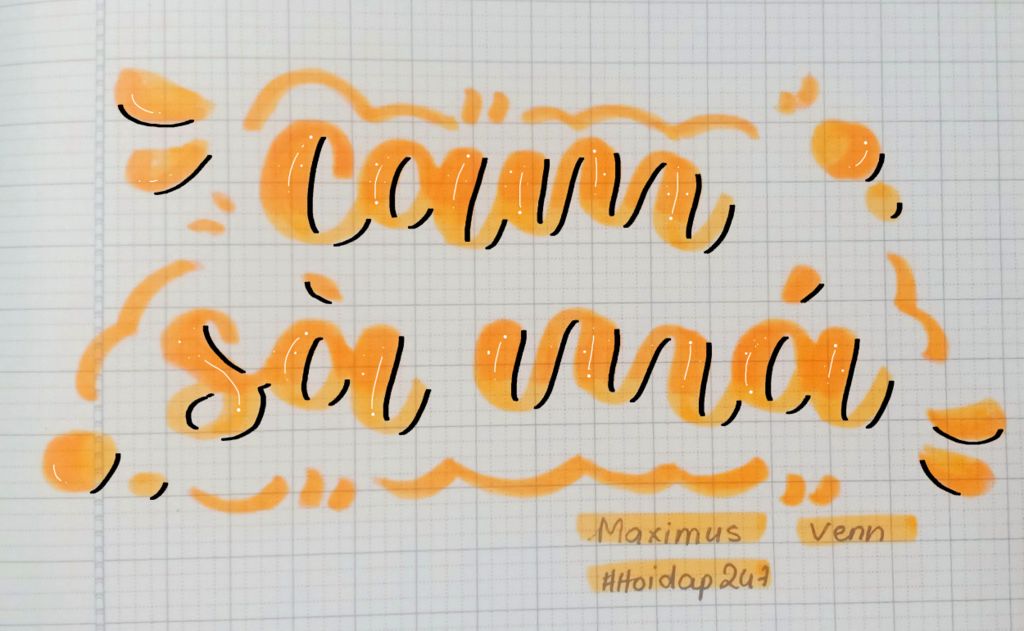 Cam
sà má
Maximus Venn
#Hoidap247